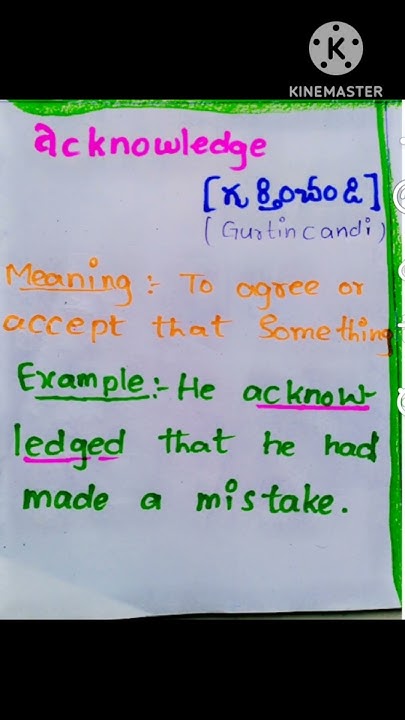 KINEMASTER
acknowledge
[గుర్తించండి]
(Gurtincandi)
Meaning :- To agree or
accept that Something
Example:- He acknow-
ledged that he had
made a mistake.